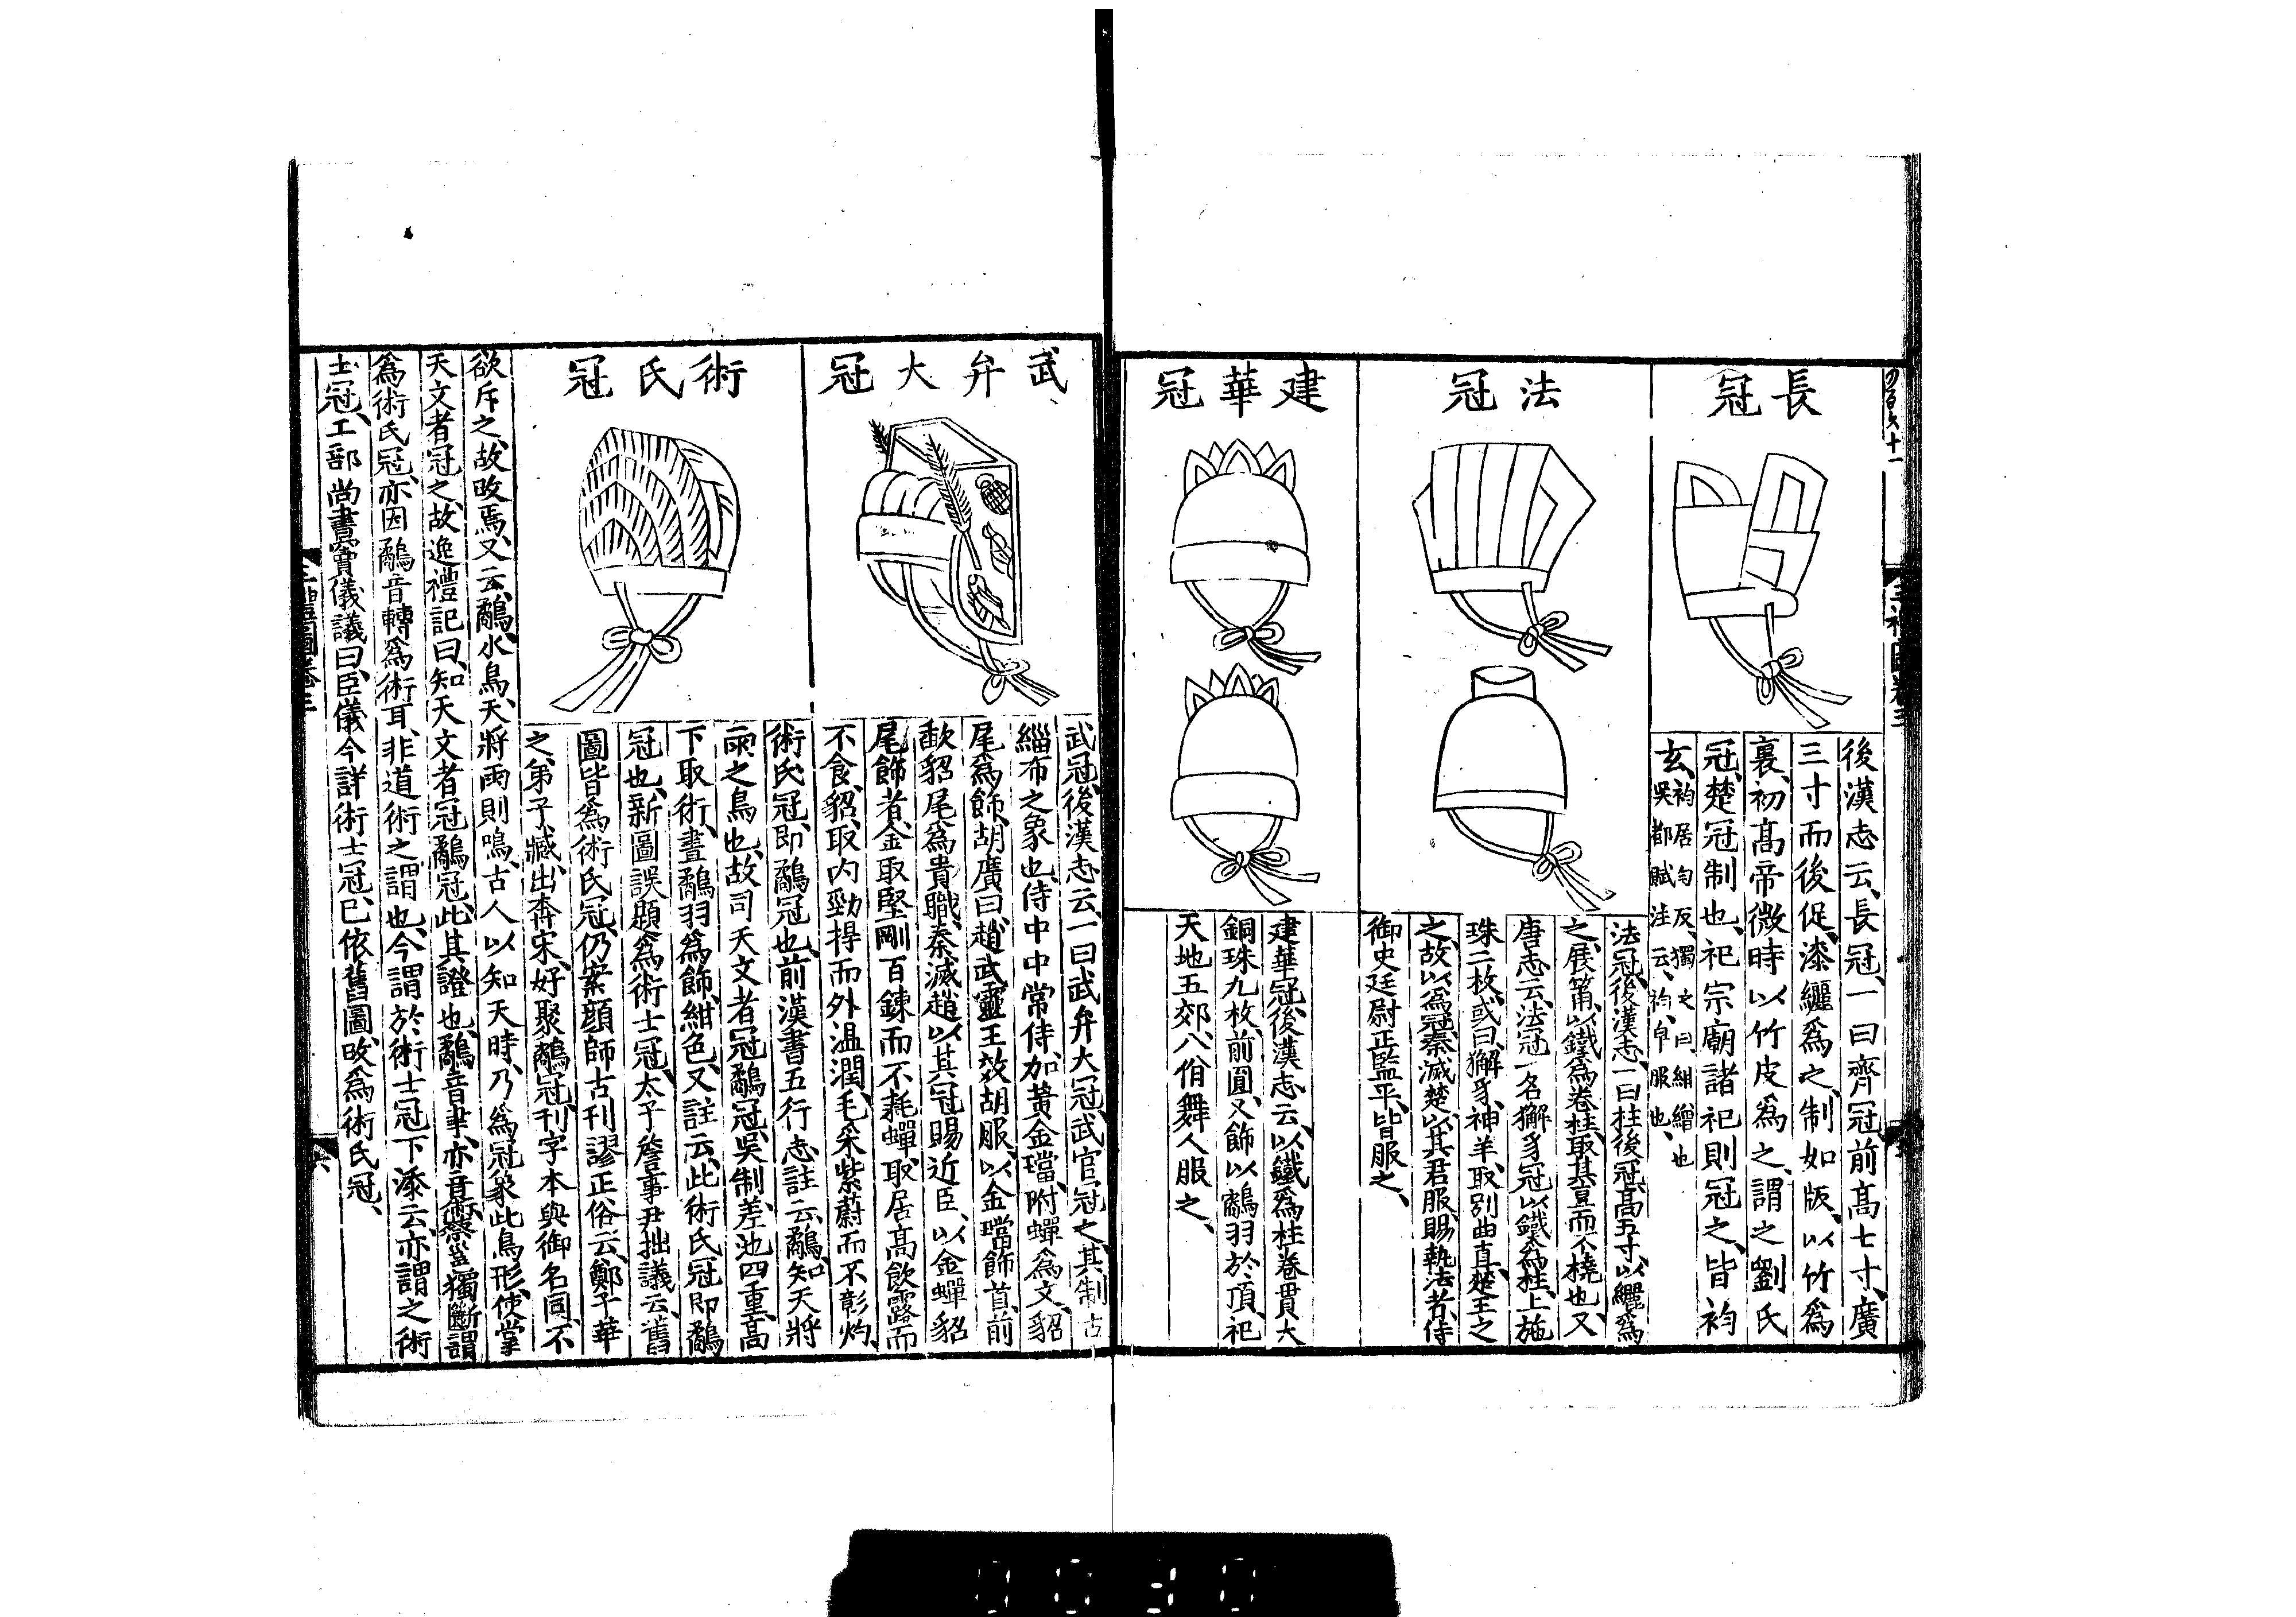 長冠
後漢志云、長冠、一曰齊冠、前高七寸、廣
三寸、而後促、漆纚爲之、制如版、以竹爲
裏、初高帝微時、以竹皮爲之、謂之劉氏
冠、楚冠制也、祀宗廟諸祀則冠之、皆袀
玄、袀居勻反、獨文曰紺繒也
吳都賦注云、袀、皁服也、
法冠
法冠、後漢志、一曰柱後冠、高五寸、以纚爲
之、展筩、以鐵爲卷柱、取其直而不橈也、又
唐志云、法冠一名獬豸冠、以鐵爲柱、上施
珠二枚、或曰、獬豸、神羊、取別曲直、楚王之
之、故以爲冠、秦滅楚、以其君服賜執法者、侍
御史廷尉正監平、皆服之、
建華冠
建華冠、後漢志云、以鐵爲柱卷、貫大
銅珠九枚、前圓、又飾以鷸羽於頂、祀
天地五郊、八佾舞人服之、
三禮圖卷三
武弁大冠
武冠、後漢志云、一曰武弁大冠、武官冠之、其制古
緇布之象也、侍中中常侍、加黃金璫、附蟬爲文、貂
尾爲飾、胡廣曰、趙武靈王效胡服、以金璫飾首、前
歃貂尾爲貴職、秦滅趙、以其冠賜近臣、以金蟬貂
尾飾者、金取堅剛、百鍊而不耗、蟬、取居高飲露而
不食、貂、取內勁捍而外温潤、毛采紫蔚而不彰灼、
術氏冠
術氏冠、即鷸冠也、前漢書五行志註云、鷸、知天將
雨之鳥也、故司天文者冠鷸冠、吳制、差池四重、高
下取術、畫鷸羽爲飾、紺色、又註云、此術氏冠、即鷸
冠也、新圖誤題爲術士冠、太子詹事尹拙議云、舊
圖皆爲術氏冠、仍案顔師古刊謬正俗云、鄭子華
之弟子臧、出奔宋、好聚鷸冠、刊字本與御名同、不
欲斥之、故改焉、又云、鷸、水鳥、天將雨則鳴、古人以知天時、乃爲冠象此鳥形、使掌
天文者冠之、故逸禮記曰、知天文者冠鷸冠、此其證也、鷸音聿、亦音術、蔡邕獨斷謂
爲術氏冠、亦因鷸音轉爲術耳、非道術之謂也、今謂於術士冠下添云、亦謂之術
士冠、工部尚書竇儀議曰、臣儀今詳術士冠、已依舊圖、改爲術氏冠、
三禮圖卷三
六